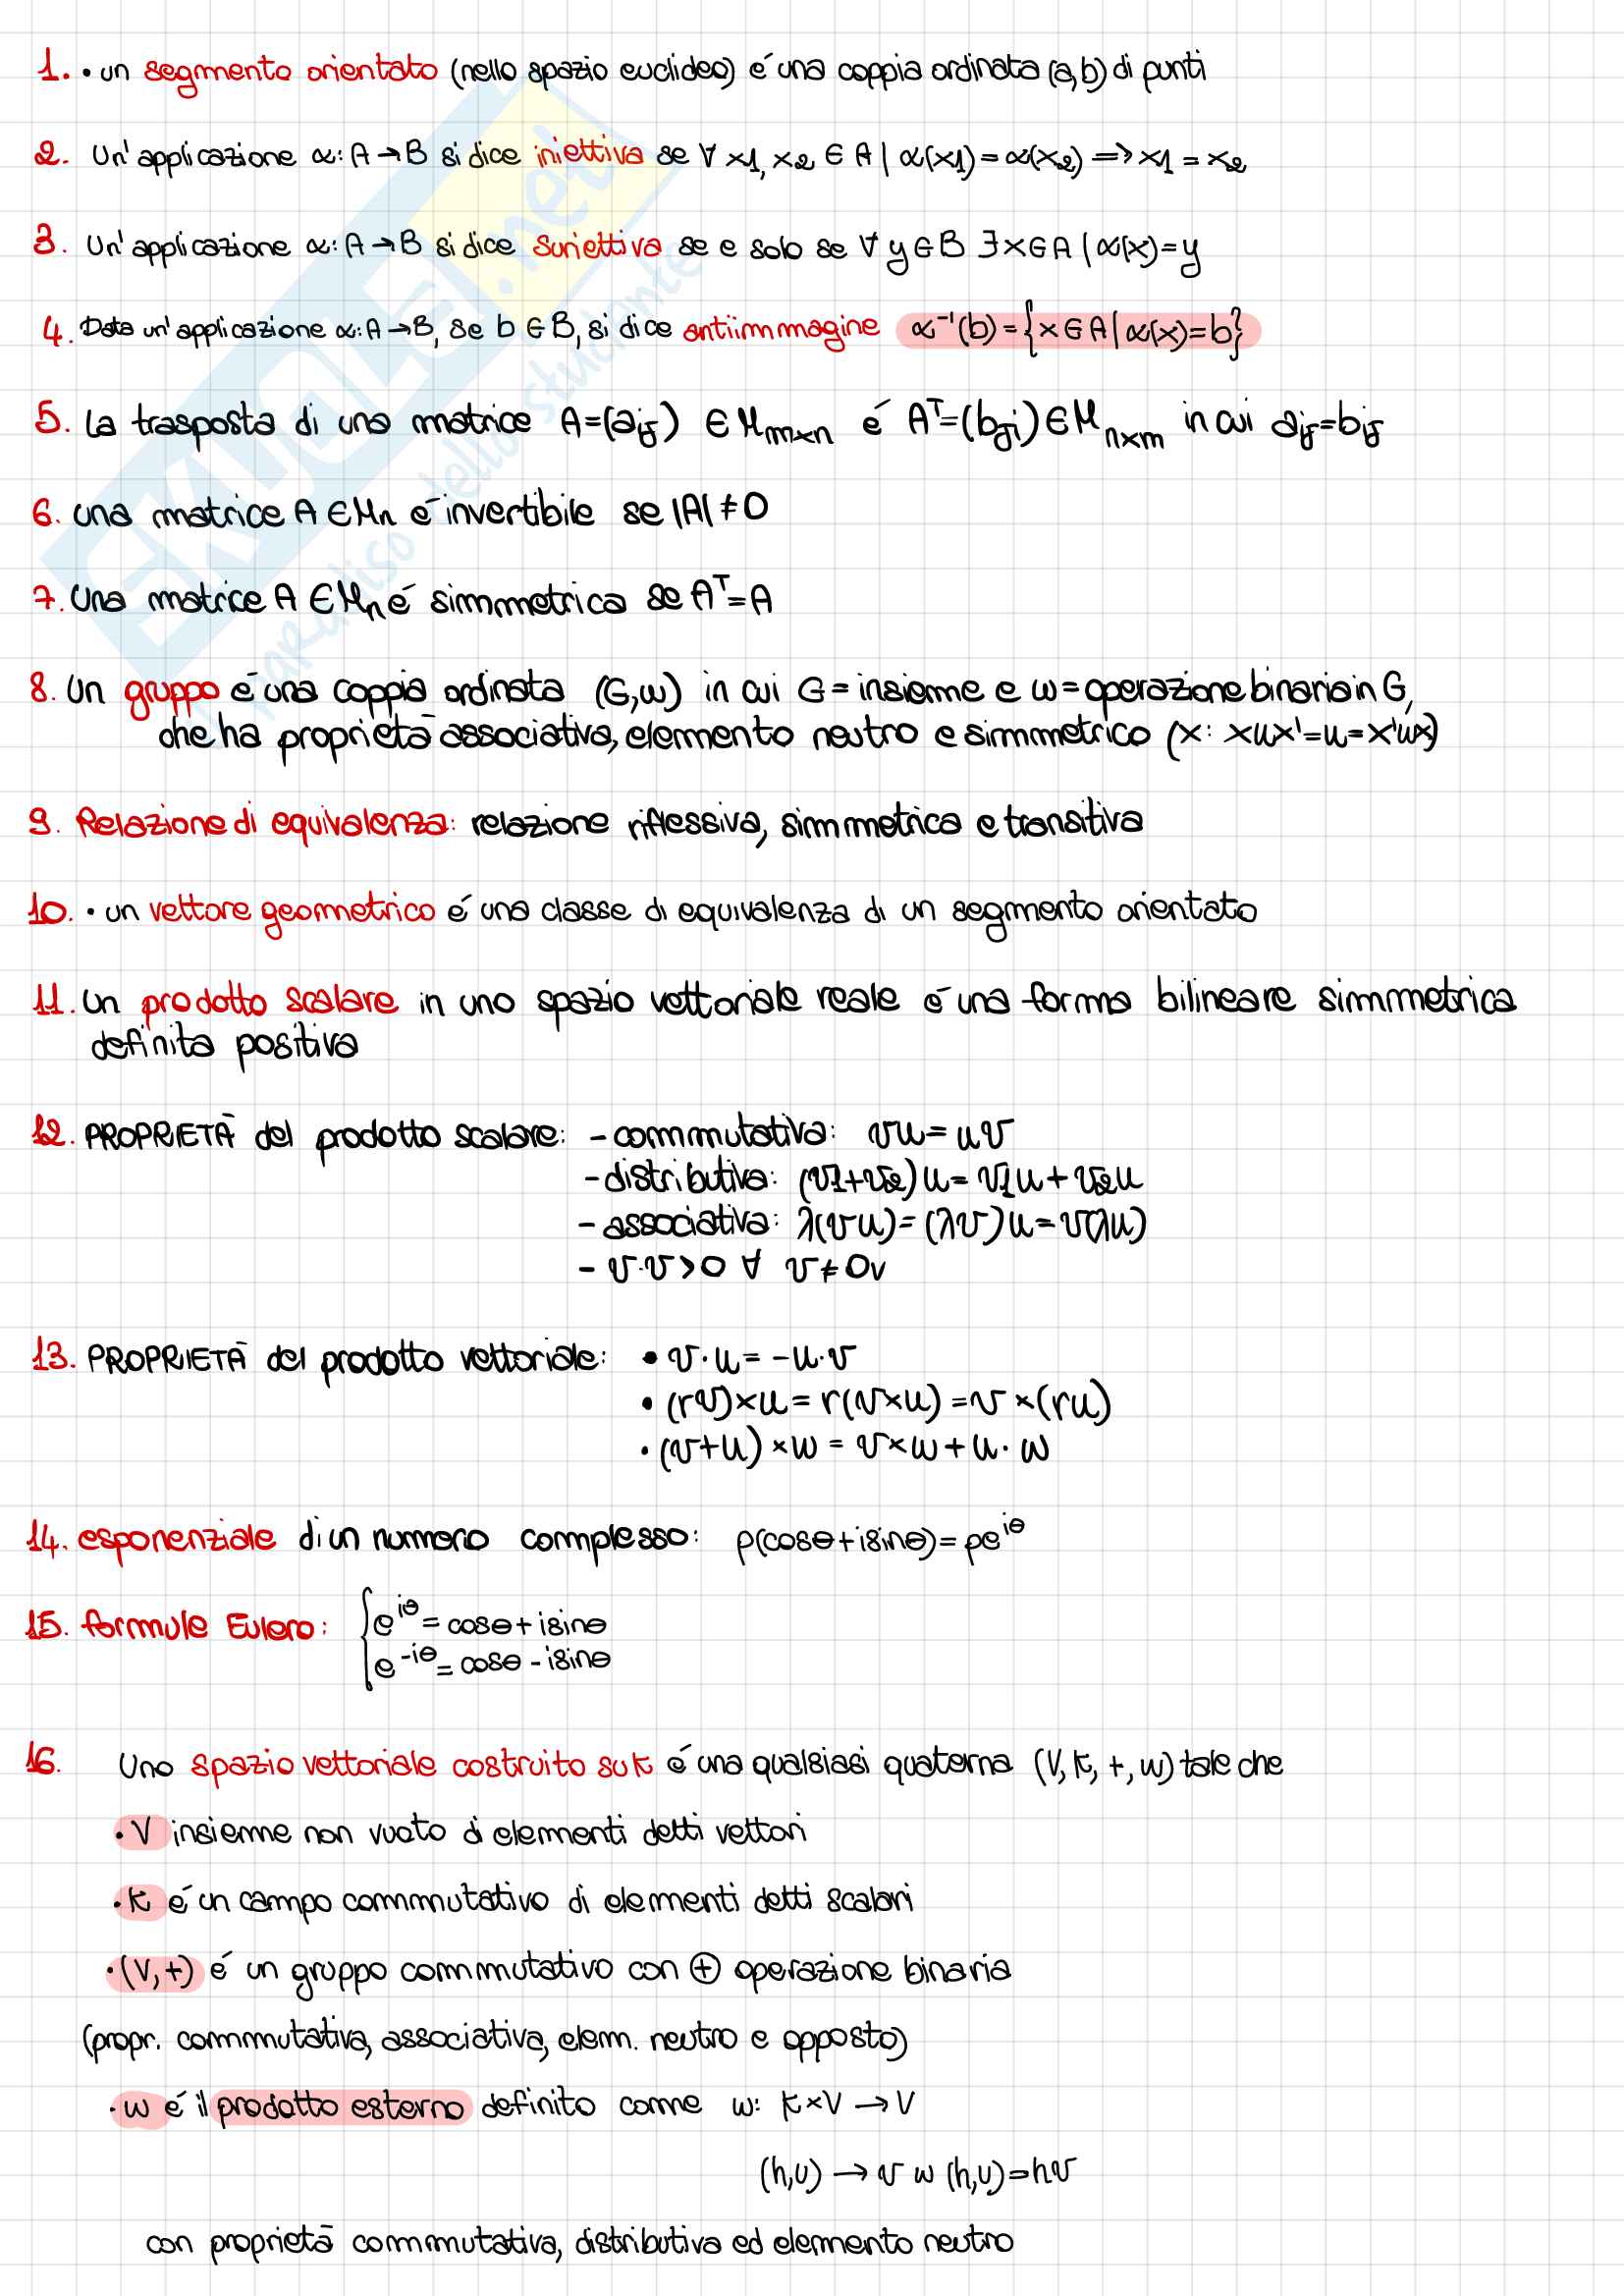 1. • un segmento orientato (nello spazio euclideo) é una coppia ordinata (a,b) di punti
2. Un'applicazione α: A → B si dice iniettiva se ∀ x1, x2 ∈ A | α(x1) = α(x2) ⟹ x1 = x2
3. Un'applicazione α: A → B si dice suriettiva se e solo se ∀ y ∈ B ∃ x ∈ A | α(x) = y
4. Data un'applicazione α: A → B, se b ∈ B, si dice antiimmagine α⁻¹(b) = {x ∈ A | α(x) = b}
5. La trasposta di una matrice A=(aij) ∈ Mm×n é Aᵀ=(bji) ∈ Mn×m in cui aij=bij
6. una matrice A ∈ Mn é invertibile se |A| ≠ 0
7. Una matrice A ∈ Mn é simmetrica se Aᵀ=A
8. Un gruppo é una coppia ordinata (G,w) in cui G = insieme e w = operazione binaria in G,
che ha proprietà associativa, elemento neutro e simmetrico (x: xux'=u=x'ux)
9. Relazione di equivalenza: relazione riflessiva, simmetrica e transitiva
10. • un vettore geometrico é una classe di equivalenza di un segmento orientato
11. Un prodotto scalare in uno spazio vettoriale reale é una forma bilineare simmetrica
definita positiva
12. PROPRIETÀ del prodotto scalare: - commutativa: vu = uv
- distributiva: (v1+v2)u = v1u + v2u
- associativa: λ(vu) = (λv)u = v(λu)
- v·v > 0 ∀ v ≠ 0v
13. PROPRIETÀ del prodotto vettoriale: • v·u = -u·v
• (rv)×u = r(v×u) = v×(ru)
• (v+u)×w = v×w + u·w
14. esponenziale di un numero complesso: ρ(cosθ+isinθ) = ρe^iθ
15. formule Eulero: { e^iθ = cosθ + isinθ
e^-iθ = cosθ - isinθ
16. Uno spazio vettoriale costruito su K é una qualsiasi quaterna (V, K, +, w) tale che
• V insieme non vuoto di elementi detti vettori
• K é un campo commutativo di elementi detti scalari
• (V,+) é un gruppo commutativo con ⊕ operazione binaria
(propr. commutativa, associativa, elem. neutro e opposto)
• w é il prodotto esterno definito come w: K×V → V
(h,v) → v w (h,v) = hv
con proprietà commutativa, distributiva ed elemento neutro
SKUOLA.net
paradiso dello studente